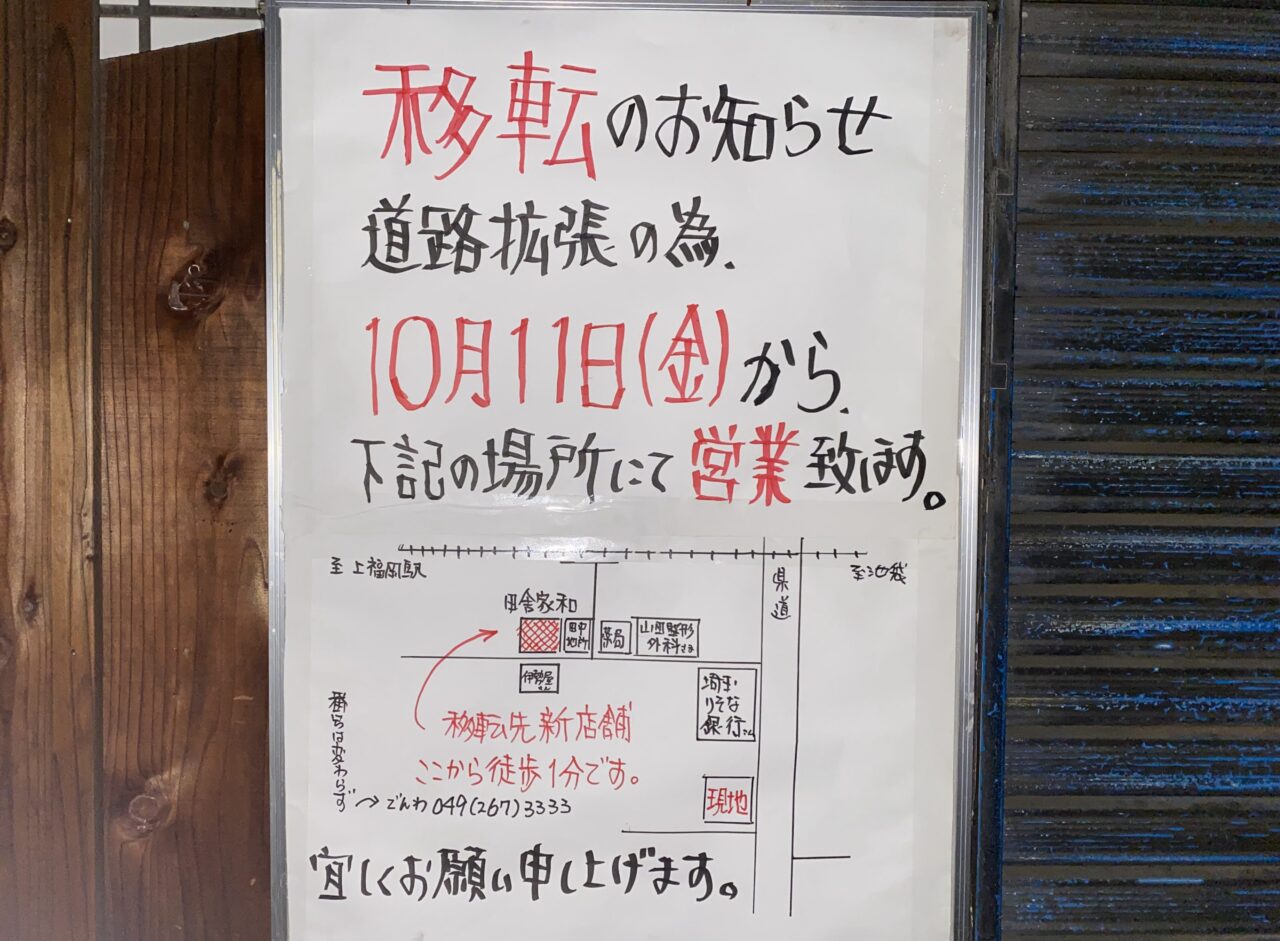 移転のお知らせ
道路拡張の為、
10月11日(金)から、
下記の場所にて営業致します。
至上福岡駅
至池袋
県道
田舎家和
田中地所
薬局
山田整形
外科さま
伊勢屋さん
埼玉
りそな
銀行さん
移転先新店舗
ここから徒歩1分です。
現地
番号は変わらず
でんわ 049(267)3333
宜しくお願い申し上げます。